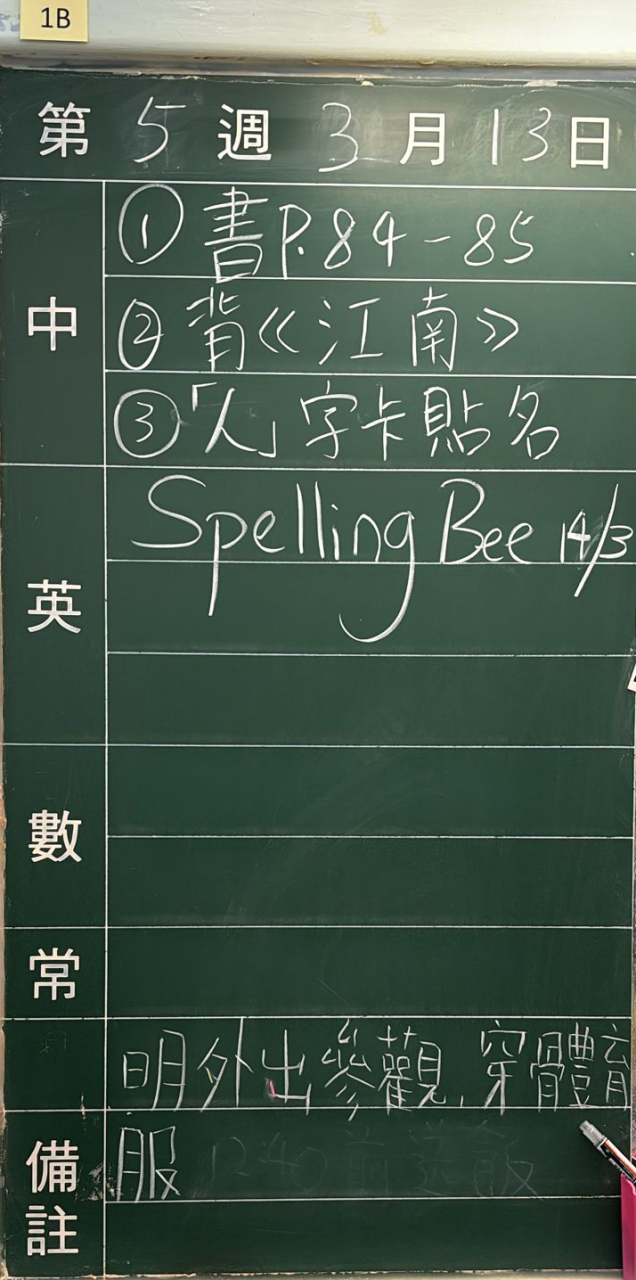 1B
第5週3月13日
中
①書P.84-85
②背《江南》
③「人」字卡貼名
英
Spelling Bee 14/3
數
常
明外出參觀,穿體育
備註
服